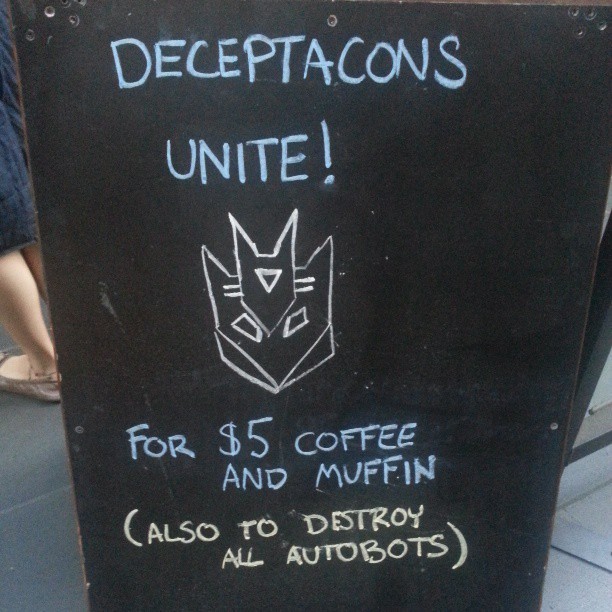 DECEPTACONS
UNITE!
FOR $5 COFFEE
AND MUFFIN
(ALSO TO DESTROY
ALL AUTOBOTS)